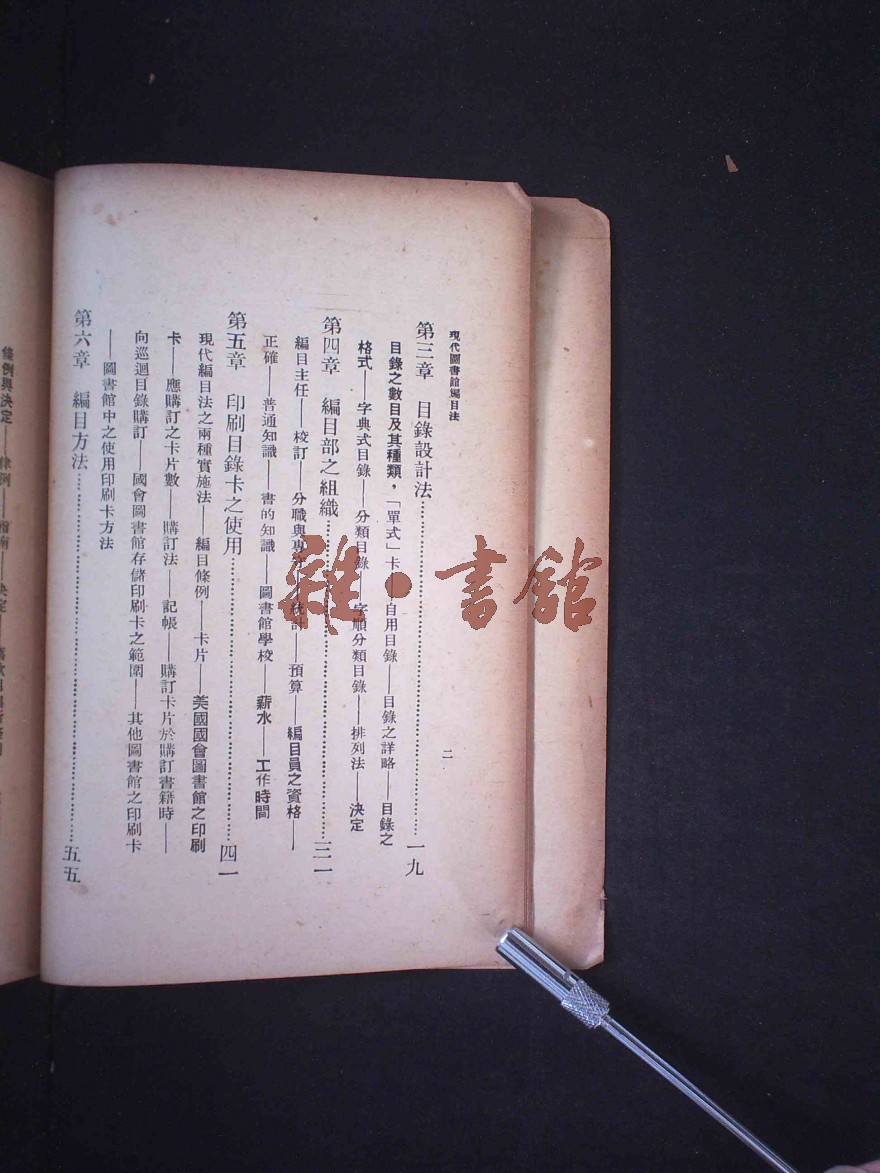 現代圖書館編目法
二
第三章　目錄設計法⋯⋯一九
目錄之數目及其種類，「單式」卡——自用目錄——目錄之詳略——目錄之
格式——字典式目錄——分類目錄——字順分類目錄——排列法——決定
第四章　編目部之組織⋯⋯三一
編目主任——校訂——分職與專——統計——預算——編目員之資格——
正確——普通知識——書的知識——圖書館學校——薪水——工作時間
第五章　印刷目錄卡之使用⋯⋯四一
現代編目法之兩種實施法——編目條例——卡片——美國國會圖書館之印刷
卡——應購訂之卡片數——購訂法——記帳——購訂卡片於購訂書籍時——
向巡迴目錄購訂——國會圖書館存儲印刷卡之範圍——其他圖書館之印刷卡
——圖書館中之使用印刷卡方法
第六章　編目方法⋯⋯五五
條例與決定——律例——指南——決定——
雜·書館